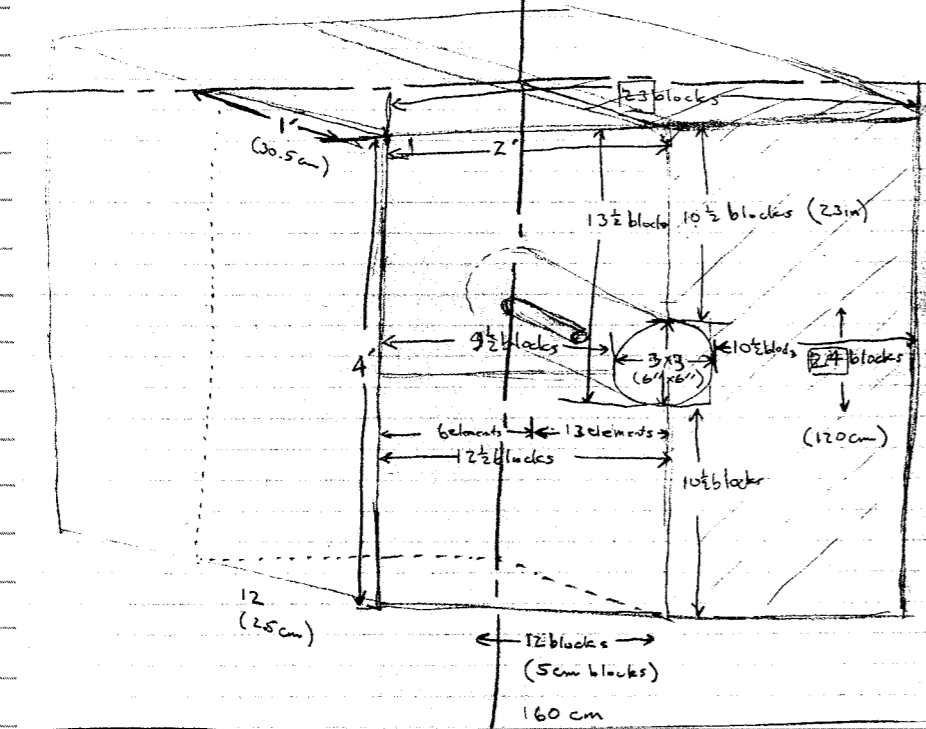 23 blocks
1'
(30.5cm)
2'
13½ blocks
10½ blocks (23in)
9½ blocks
3×3
(6"×6")
10½ blocks
24 blocks
4'
(120cm)
6 elements
13 elements
12½ blocks
10½ blocks
12
(25cm)
12 blocks
(5cm blocks)
160 cm